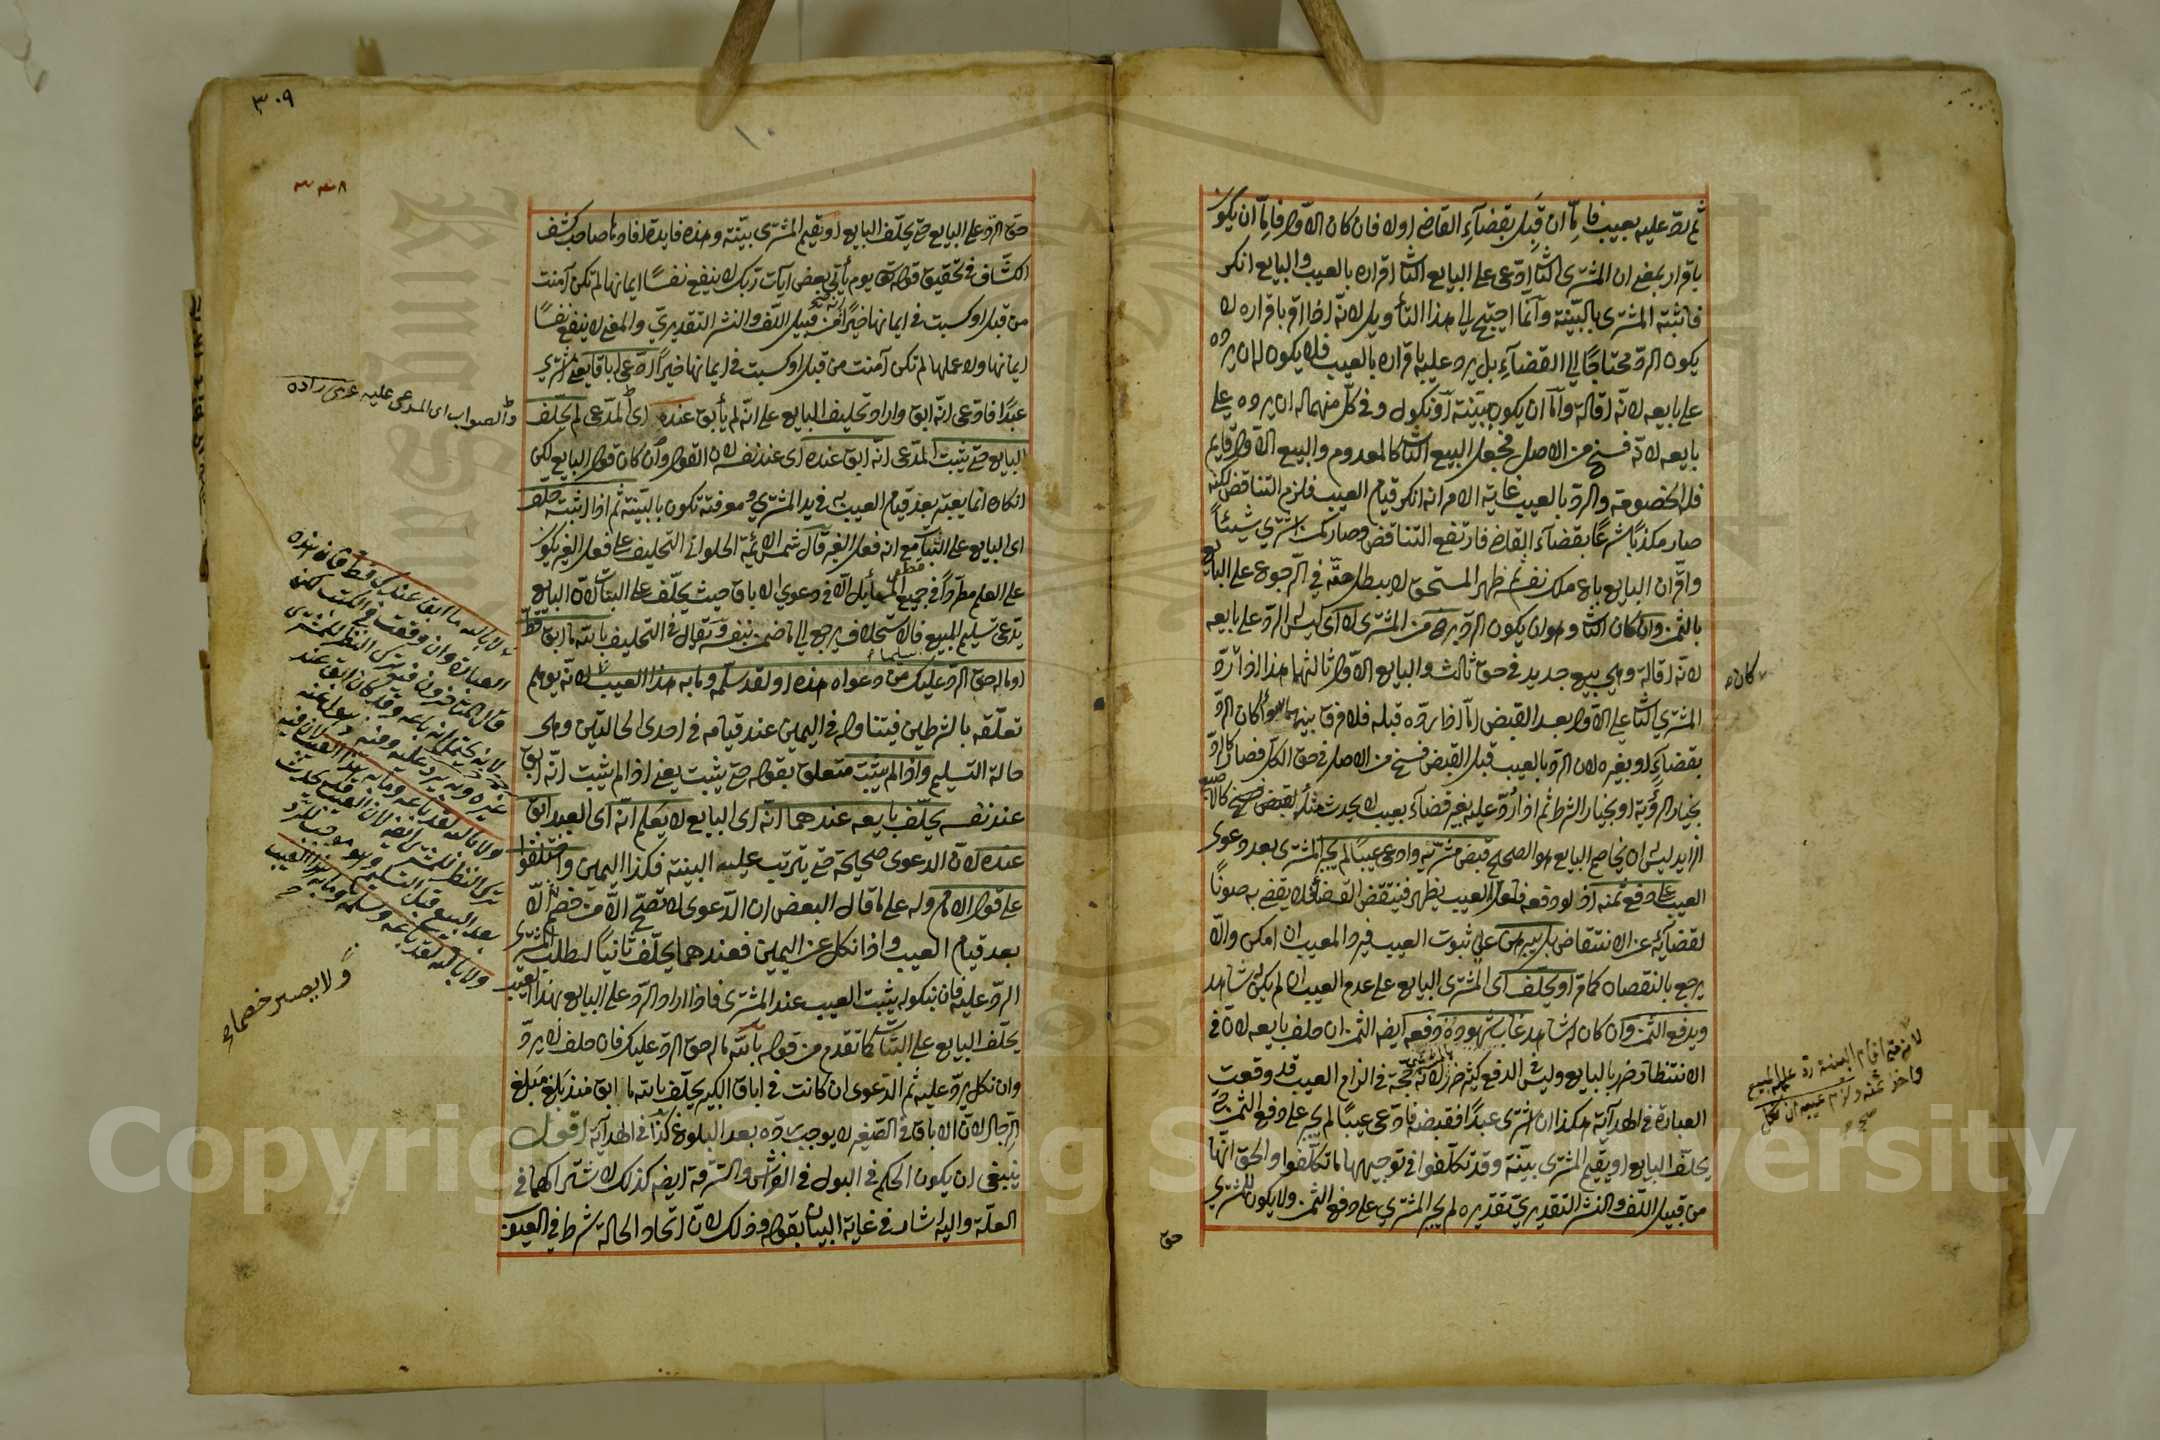 ثم رد عليه بعيب فاما ان قبل بقضاء القاضي اولا فان كان الاول فاما ان يكون
باقرار بمعنى ان المشتري الثاني ادعى على البايع الثاني اقراره بالعيب والبايع انكر
فاثبته المشتري بالبينة وانما احتيج الى هذا التأويل لانه اذا اقر باقراره لا
يكون الرد محتاجا الى القضاء بل يرد عليه باقراره بالعيب فلا يكون له ان يرده
على بايعه لانه اقالة واما ان يكون ببينة او نكول وفي كل منهما له ان يرده على
بايعه لانه فسخ من الاصل فجعل البيع الثاني كالمعدوم والبيع الاول قايم
فله الخصومة والرد بالعيب غاية الامر انه انكر قيام العيب فلزم التناقض لكنه
صار مكذبا شرعا بقضاء القاضي فارتفع التناقض وصار كمن اشترى شيئا
واقر ان البايع باع ملك نفسه ثم ظهر المستحق لا يبطل حقه في الرجوع على البايع
بالثمن وان كان الثاني وهو ان يكون الرد برضى من المشتري لا اي ليس له الرد على بايعه
لانه اقالة وهي بيع جديد في حق ثالث والبايع الاول ثالثهما هذا اذا رد
المشتري الثاني على الاول بعد القبض اما اذا رده قبله فلا فرق بينهما سواء كان الرد
بقضاء او بغيره لان الرد بالعيب قبل القبض فسخ من الاصل في حق الكل فصار كالرد
بخيار الرؤية او بخيار الشرط ثم اذا رد عليه بغير قضاء بعيب لا يحدث مثله
الزايد ليس له ان يخاصم البايع هو الصحيح قبض مشتريه وادعى عيبا لم يجبر المشتري بعد دعوى
العيب على دفع ثمنه اذ لو دفعه فلعل العيب يظهر فينتقض القضاء فلا يقضى به صونا
لقضائه عن الانتقاض بل يبرهن على ثبوت العيب فيرد المعيب ان امكن والا
يرجع بالنقصان كما مر او يحلف اي المشتري البايع على عدم العيب ان لم يكن له شاهد
ويدفع الثمن وان كان له شاهد غاب شهوده دفعه ايضا الثمن ان حلف بايعه لان في
الانتظار ضرر بالبايع وليس في الدفع كثير ضرر لانه حجة في الزام العيب قد وقعت
العبارة في الهداية هكذا ان اشترى عبدا فقبضه فادعى عيبا لم يجبر على دفع الثمن حتى
يحلف البايع او يقيم المشتري بينة وقد تكلفوا في توجيهها ما تكلفوا والحق انها
من قبيل اللف والنشر التقديري تقديره لم يجبر المشتري على دفع الثمن ولا يكون للمشتري
كان
لانه متى اقام البينة رد عليه المبيع
واخذ ثمنه ولزم عيبه ان نكل
صح
حق
٣٠٩
حق الرد على البايع حتى يحلف البايع او يقيم المشتري بينة وهذه فايدة افادها صاحب كشف
الكشاف في تحقيق قوله تعالى يوم يأتي بعض آيات ربك لا ينفع نفسا ايمانها لم تكن آمنت
من قبل او كسبت في ايمانها خيرا انه من قبيل اللف والنشر التقديري والمعنى لا ينفع نفسا
ايمانها ولا عملها لم تكن آمنت من قبل او كسبت في ايمانها خيرا ادعى اباقا يعني اشترى
عبدا فادعى انه ابق واراد تحليف البايع على انه لم يأبق عنده اي المدعى لم يحلف
البايع حتى يثبت المدعي انه ابق عنده اي عند نفسه لان القول وان كان قول البايع لكن
انكاره انما يعتبر بعد قيام العيب به في يد المشتري ومعرفته تكون بالبينة ثم اذا اثبته حلف
اي البايع على البتات مع انه فعل الغير قال شمس الائمة الحلواني التحليف على فعل الغير يكون
على العلم مطردا في جميع المسايل الا في دعوى الاباق حيث يحلف على البتات لان البايع
يدعي تسليم المبيع فالاستحلاف يرجع الى ما ضمن بنفسه ويقال في التحليف بالله ما ابق قط
او ماله حق الرد عليك من دعواه هذه او لقد سلمه وما به هذا العيب لانه يوهم
تعلقه بالشرطين فيتناوله في اليمين عند قيامه في احدى الحالتين وهي
حالة التسليم واذا لم يثبت متعلق بقوله حتى يثبت يعني اذا لم يثبت انه ابق
عند نفسه يحلف بايعه عندهما انه اي البايع لا يعلم انه اي العبد ابق
عنده لان الدعوى صحيحة حتى يترتب عليه البينة فكذا اليمين واختلفوا
على قول الامام وله على ما قال البعض ان الدعوى لا تصح الا من خصم ولا
بعد قيام العيب واذا نكل عن اليمين فعندهما يحلف ثانيا لطلب المشتري
الرد عليه فان بنكوله يثبت العيب عند المشتري فاذا اراد الرد على البايع بهذا العيب
يحلف البايع على البتات كما تقدم من قوله بالله ماله حق الرد عليك فان حلف لا يرد
وان نكل يرد عليه ثم الدعوى ان كانت في اباق الكبير يحلف بالله ما ابق منذ بلغ مبلغ
الرجال لان الاباق في الصغير لا يوجب رده بعد البلوغ كذا في الهداية اقول
ينبغي ان يكون الحكم في البول في الفراش والسرقة ايضا كذلك لاشتراكهما في
العلة واليه اشار في غاية البيان بقوله وذلك لان اتحاد الحالة شرط في العيوب
والصواب اي المدعى عليه عزمي زاده
لا بالله ما ابق عندك قط فان هذه
العبارة وان وقعت في الكتب لكن
قال المتأخرون فيه ترك النظر للمشتري
لانه يحتمل انه باعه وقد كان ابق عند
غيره وبه يرد عليه
ولا بالله لقد باعه وما به هذا العيب لان فيه
ترك النظر للمشتري ايضا لان العيب قد يحدث
بعد البيع قبل التسليم وهو موجب للرد
ولا بالله لقد باعه وسلمه وما به هذا العيب
ولا يصير خصما